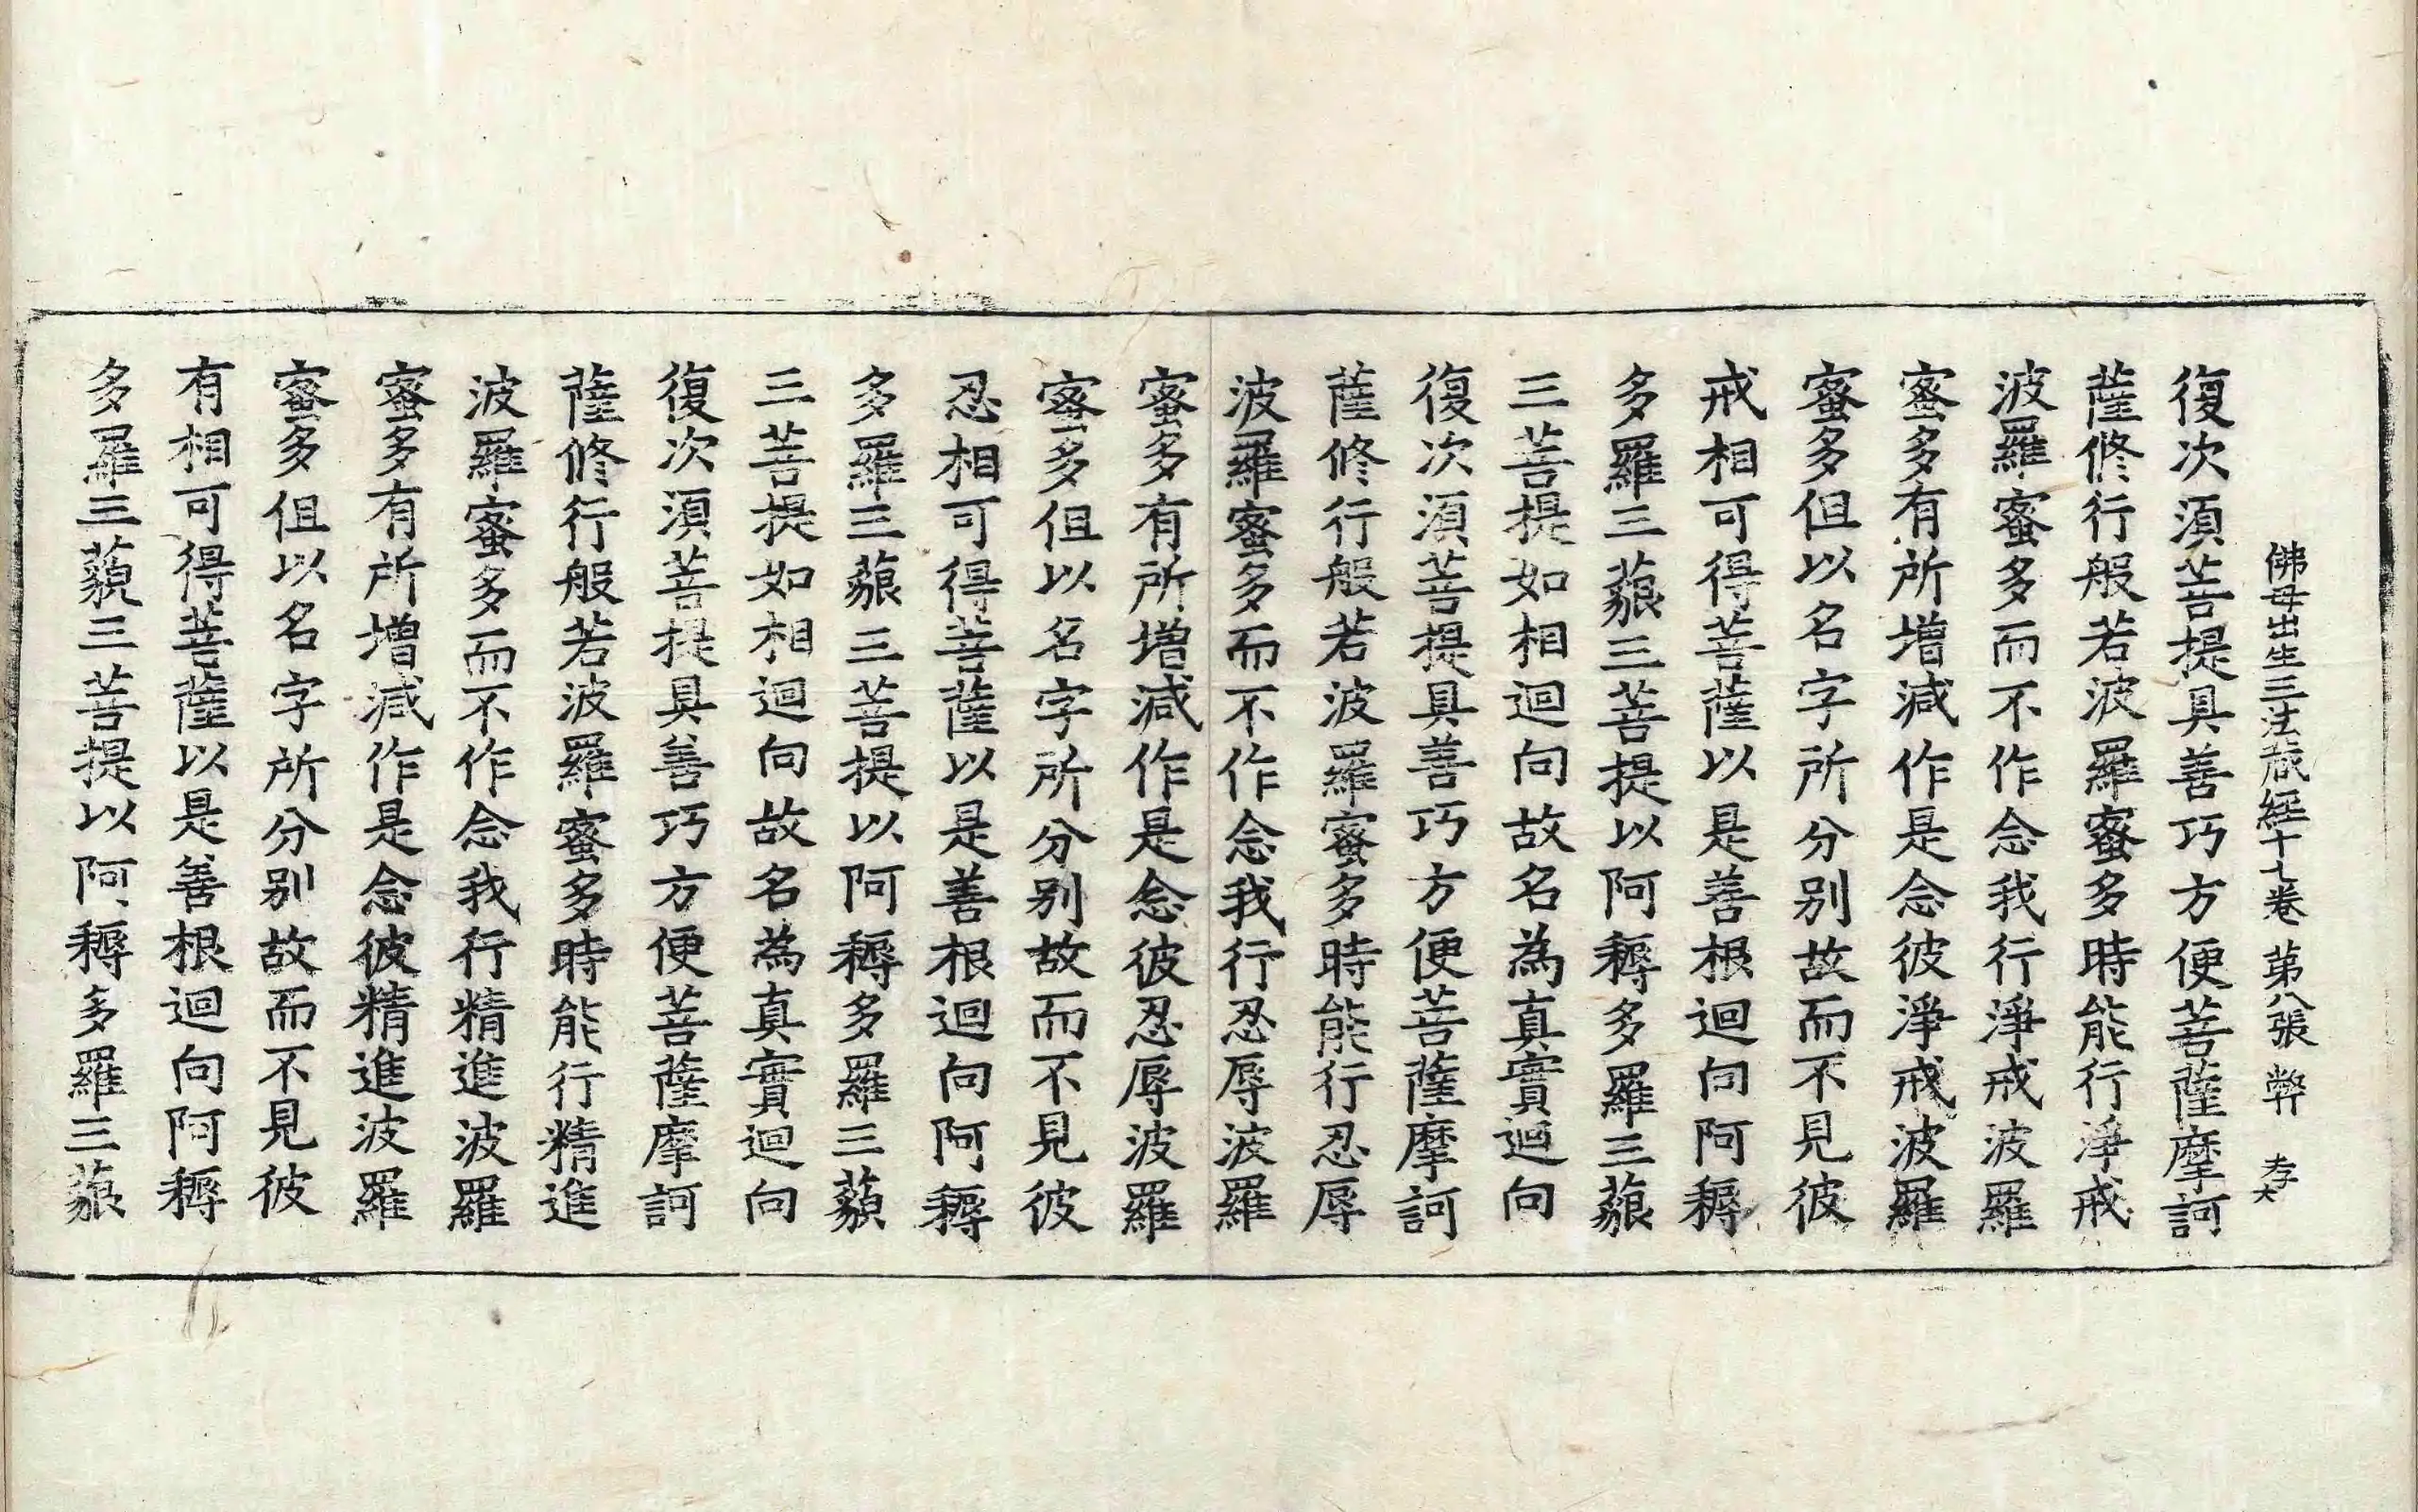 佛母出生三法藏經十七卷 第八張 弊 孝大
復次須菩提具善巧方便菩薩摩訶
薩修行般若波羅蜜多時能行淨戒
波羅蜜多而不作念我行淨戒波羅
蜜多有所增減作是念彼淨戒波羅
蜜多但以名字所分別故而不見彼
戒相可得菩薩以是善根迴向阿耨
多羅三藐三菩提以阿耨多羅三藐
三菩提如相迴向故名為真實迴向
復次須菩提具善巧方便菩薩摩訶
薩修行般若波羅蜜多時能行忍辱
波羅蜜多而不作念我行忍辱波羅
蜜多有所增減作是念彼忍辱波羅
蜜多但以名字所分別故而不見彼
忍相可得菩薩以是善根迴向阿耨
多羅三藐三菩提以阿耨多羅三藐
三菩提如相迴向故名為真實迴向
復次須菩提具善巧方便菩薩摩訶
薩修行般若波羅蜜多時能行精進
波羅蜜多而不作念我行精進波羅
蜜多有所增減作是念彼精進波羅
蜜多但以名字所分別故而不見彼
有相可得菩薩以是善根迴向阿耨
多羅三藐三菩提以阿耨多羅三藐